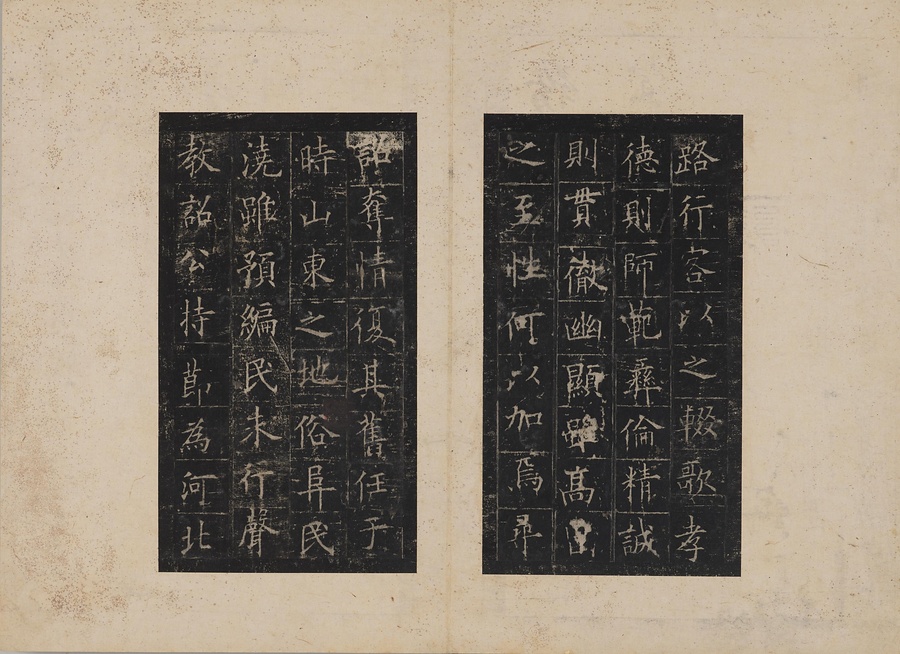 路行客以之輟歌孝
德則師範彝倫精誠
則貫徹幽顯雖高
之至性何以加焉尋
詔奪情復其舊任于
時山東之地俗阜民
澆雖預編民未行聲
教詔公持節為河北